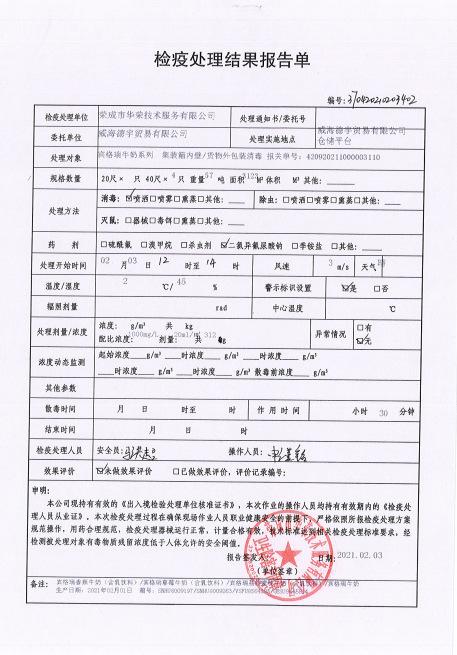 检疫处理结果报告单
编号: 370820210203402
检疫处理单位 荣成市华荣技术服务有限公司 处理通知书/委托号
委托单位 威海德宇贸易有限公司 处理实施地点 威海德宇贸易有限公司仓储平台
处理对象 宾格瑞牛奶系列 集装箱内壁/货物外包装消毒 报关单号: 420920211000003110
规格数量 20尺× 只 40尺× 4 只 重量 57 吨 面积 3123 M² 体积 M³ 其他:
处理方法 消毒: ☑喷洒□喷雾□熏蒸□其他: 除虫: □喷洒□喷雾□熏蒸□其他:
灭鼠: □器械□毒饵□熏蒸□其他:
药 剂 □硫酰氟 □溴甲烷 □杀虫剂 ☑二氯异氰尿酸钠 □季铵盐 □其他:
处理开始时间 02 月 03 日 12 时至 14 时 风速 3 m/s 天气
温度/湿度 2 ℃/ 45 % 警示标识设置 ☑是 □否
辐照剂量 rad 中心温度 ℃
处理剂量/浓度 浓度: g/m³ 共 kg 异常情况 □有
配比浓度: 1000mg/L 剂量: 20ml/ 共 312 kg ☑无
浓度动态监测 起始浓度 g/m³ 时浓度 g/m³ 时浓度 g/m³
时浓度 g/m³ 时浓度 g/m³ 散毒前浓度 g/m³
其他参数
散毒时间 月 日 时至 时 作 用 时 间 小时 30 分钟
结束时间 月 日 时
检疫处理人员 安全员: 操作人员:
效果评价 ☑未做效果评价 □已做效果评价, 评价记录编号:
申明:
本公司现持有有效的《出入境检验处理单位核准证书》, 本次作业的操作人员均持有有效期内的《检疫处
理人员从业证》, 本次检疫处理过程在确保现场作业人员职业健康安全的前提下, 严格依照所报检疫处理方案
规范操作, 用药合理规范, 检疫处理器械运行正常, 计量合格有效, 技术标准达到相关检疫处理标准要求, 经
检测被处理对象有毒物质残留浓度低于人体允许的安全阈值。
报告签发人: 日期: 2021.02.03
(单位签章)
备注: 宾格瑞香蕉牛奶（含乳饮料）/宾格瑞草莓牛奶（含乳饮料）/宾格瑞牛奶（含乳饮料）/宾格瑞牛奶
生产日期: 2021年02月01日 箱号: